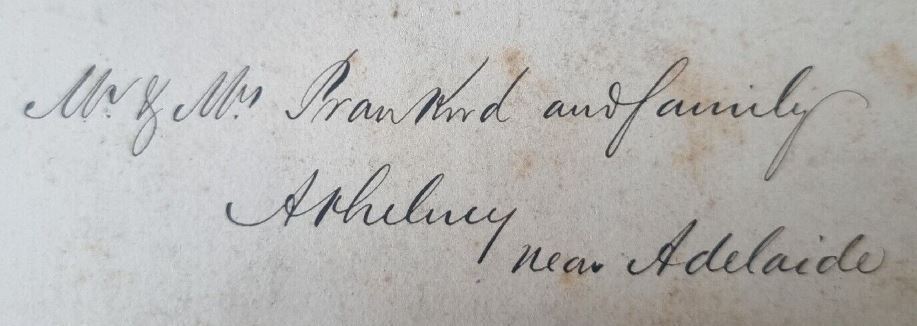 Mr. & Mrs. Prankerd and family
Athelney
near Adelaide